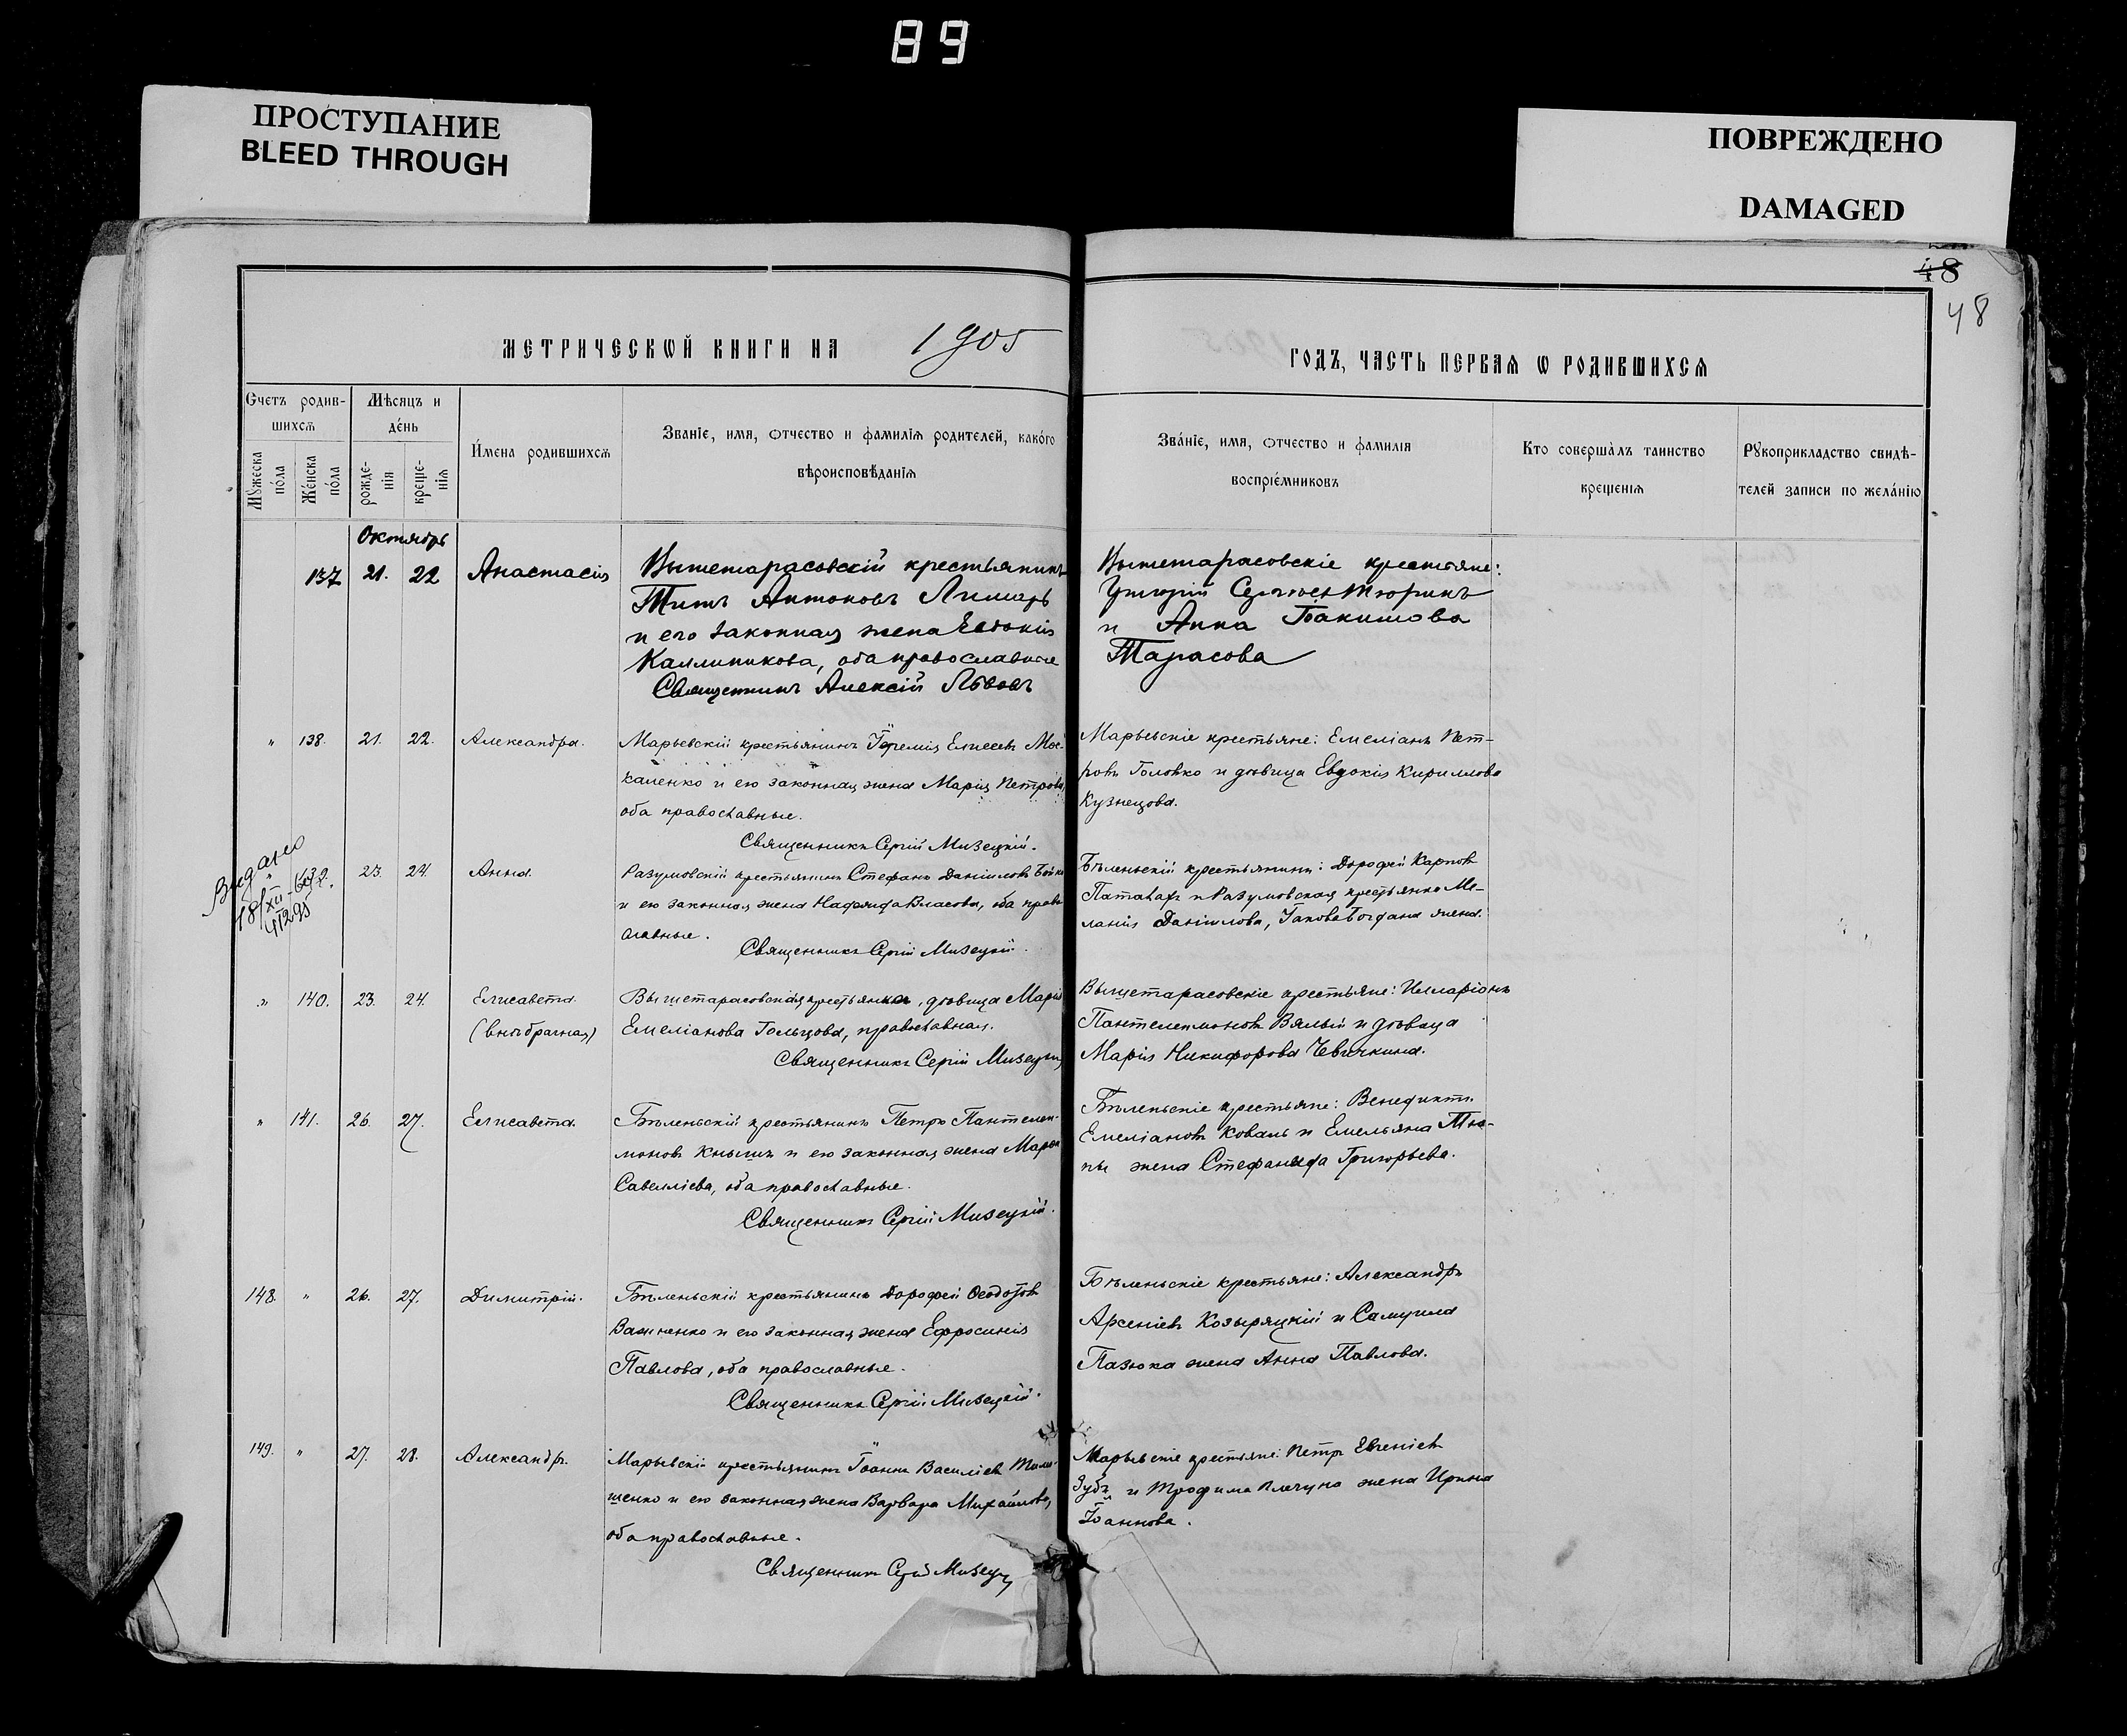 89
ПРОСТУПАНИЕ
BLEED THROUGH
ПОВРЕЖДЕНО
DAMAGED
48
48
МЕТРИЧЕСКѠЙ КНИГИ НА 1905
ГОДЪ, ЧАСТЬ ПЕРВАѦ Ѡ РОДИВШИХСѦ
Счетъ родив-
шихсѧ
Мꙋжеска
пóла
Жéнска
пóла
Мѣсяцъ и
дéнь
рождé-
нія
креще-
нія
И́мена родившихсѧ
Званіе, имя, ѻтчество и фамилія родителей, какóго
вѣроисповѣданія
Звáніе, имя, ѻтчество и фамилія
воспріéмниковъ
Кто совершáлъ таинство
крещенія
Рꙋкоприкладство свидѣ-
телей записи по желáнію
Октябрь
137 21. 22 Анастасія
Вышетарасовскій крестьянинъ
Титъ Антоновъ Лимарь
и его законная жена Евдокія
Каллиникова, оба православные
Священникъ Алексій Львовъ
Вышетарасовскіе крестьяне:
Григорій Тюринъ
и Анна
Тарасова
" 138. 21. 22. Александра.
Марьевскій крестьянинъ Іеремія Елисеевъ Мос-
каленко и его законная жена Марія Петрова,
оба православные.
Священникъ Сергій Мизецкій.
Марьевскіе крестьяне: Емеліанъ Пет-
ровъ Головко и дѣвица Евдокія Кириллова
Кузнецова.
139. 23. 24. Анна.
Разумовскій крестьянинъ Стефанъ Даніиловъ Бойко
и его законная жена Власова, оба право-
славные.
Священникъ Сергій Мизецкій.
Бѣленьскій крестьянинъ: Дорофей Карповъ
и Разумовская крестьянка Ме-
ланія Даніилова, Іакова Богдана жена.
" 140. 23. 24. Елисавета.
(внѣбрачная)
Вышетарасовская крестьянка, дѣвица Марія
Емеліанова Гольцова, православная.
Священникъ Сергій Мизецкій
Вышетарасовскіе крестьяне: Илларіонъ
Пантелеимоновъ Вялый и дѣвица
Марія Никифорова Чевичкина.
" 141. 26. 27. Елисавета.
Бѣленьскій крестьянинъ Петръ Пантелеи-
моновъ Кнышъ и его законная жена Марѳа
Савелліева, оба православные.
Священникъ Сергій Мизецкій.
Бѣленьскіе крестьяне: Венедиктъ
Емеліановъ Коваль и Емельяна Тю-
пы жена Стефанида Григорьева.
148. " 26. 27. Димитрій.
Бѣленьскій крестьянинъ Дорофей Ѳеодотовъ
Василенко и его законная жена Ефросинія
Павлова, оба православные.
Священникъ Сергій Мизецкій.
Бѣленьскіе крестьяне: Александръ
Арсеніевъ Козыряцкій и Самуила
Пазюка жена Анна Павлова.
149. " 27. 28. Александръ.
Марьевскій крестьянинъ Іоаннъ Василіевъ Тимо-
шенко и его законная жена Варвара Михайлова,
оба православные.
Священникъ Сергій Мизецкій
Марьевскіе крестьяне: Петръ Евгеніевъ
Зубъ и Трофима Плечуна жена Ирина
Іоаннова.